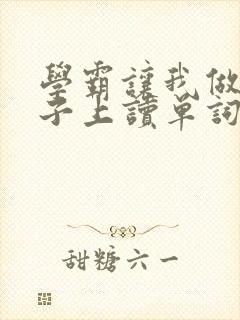 學霸讓我做
子上讀單詞
甜糖六一